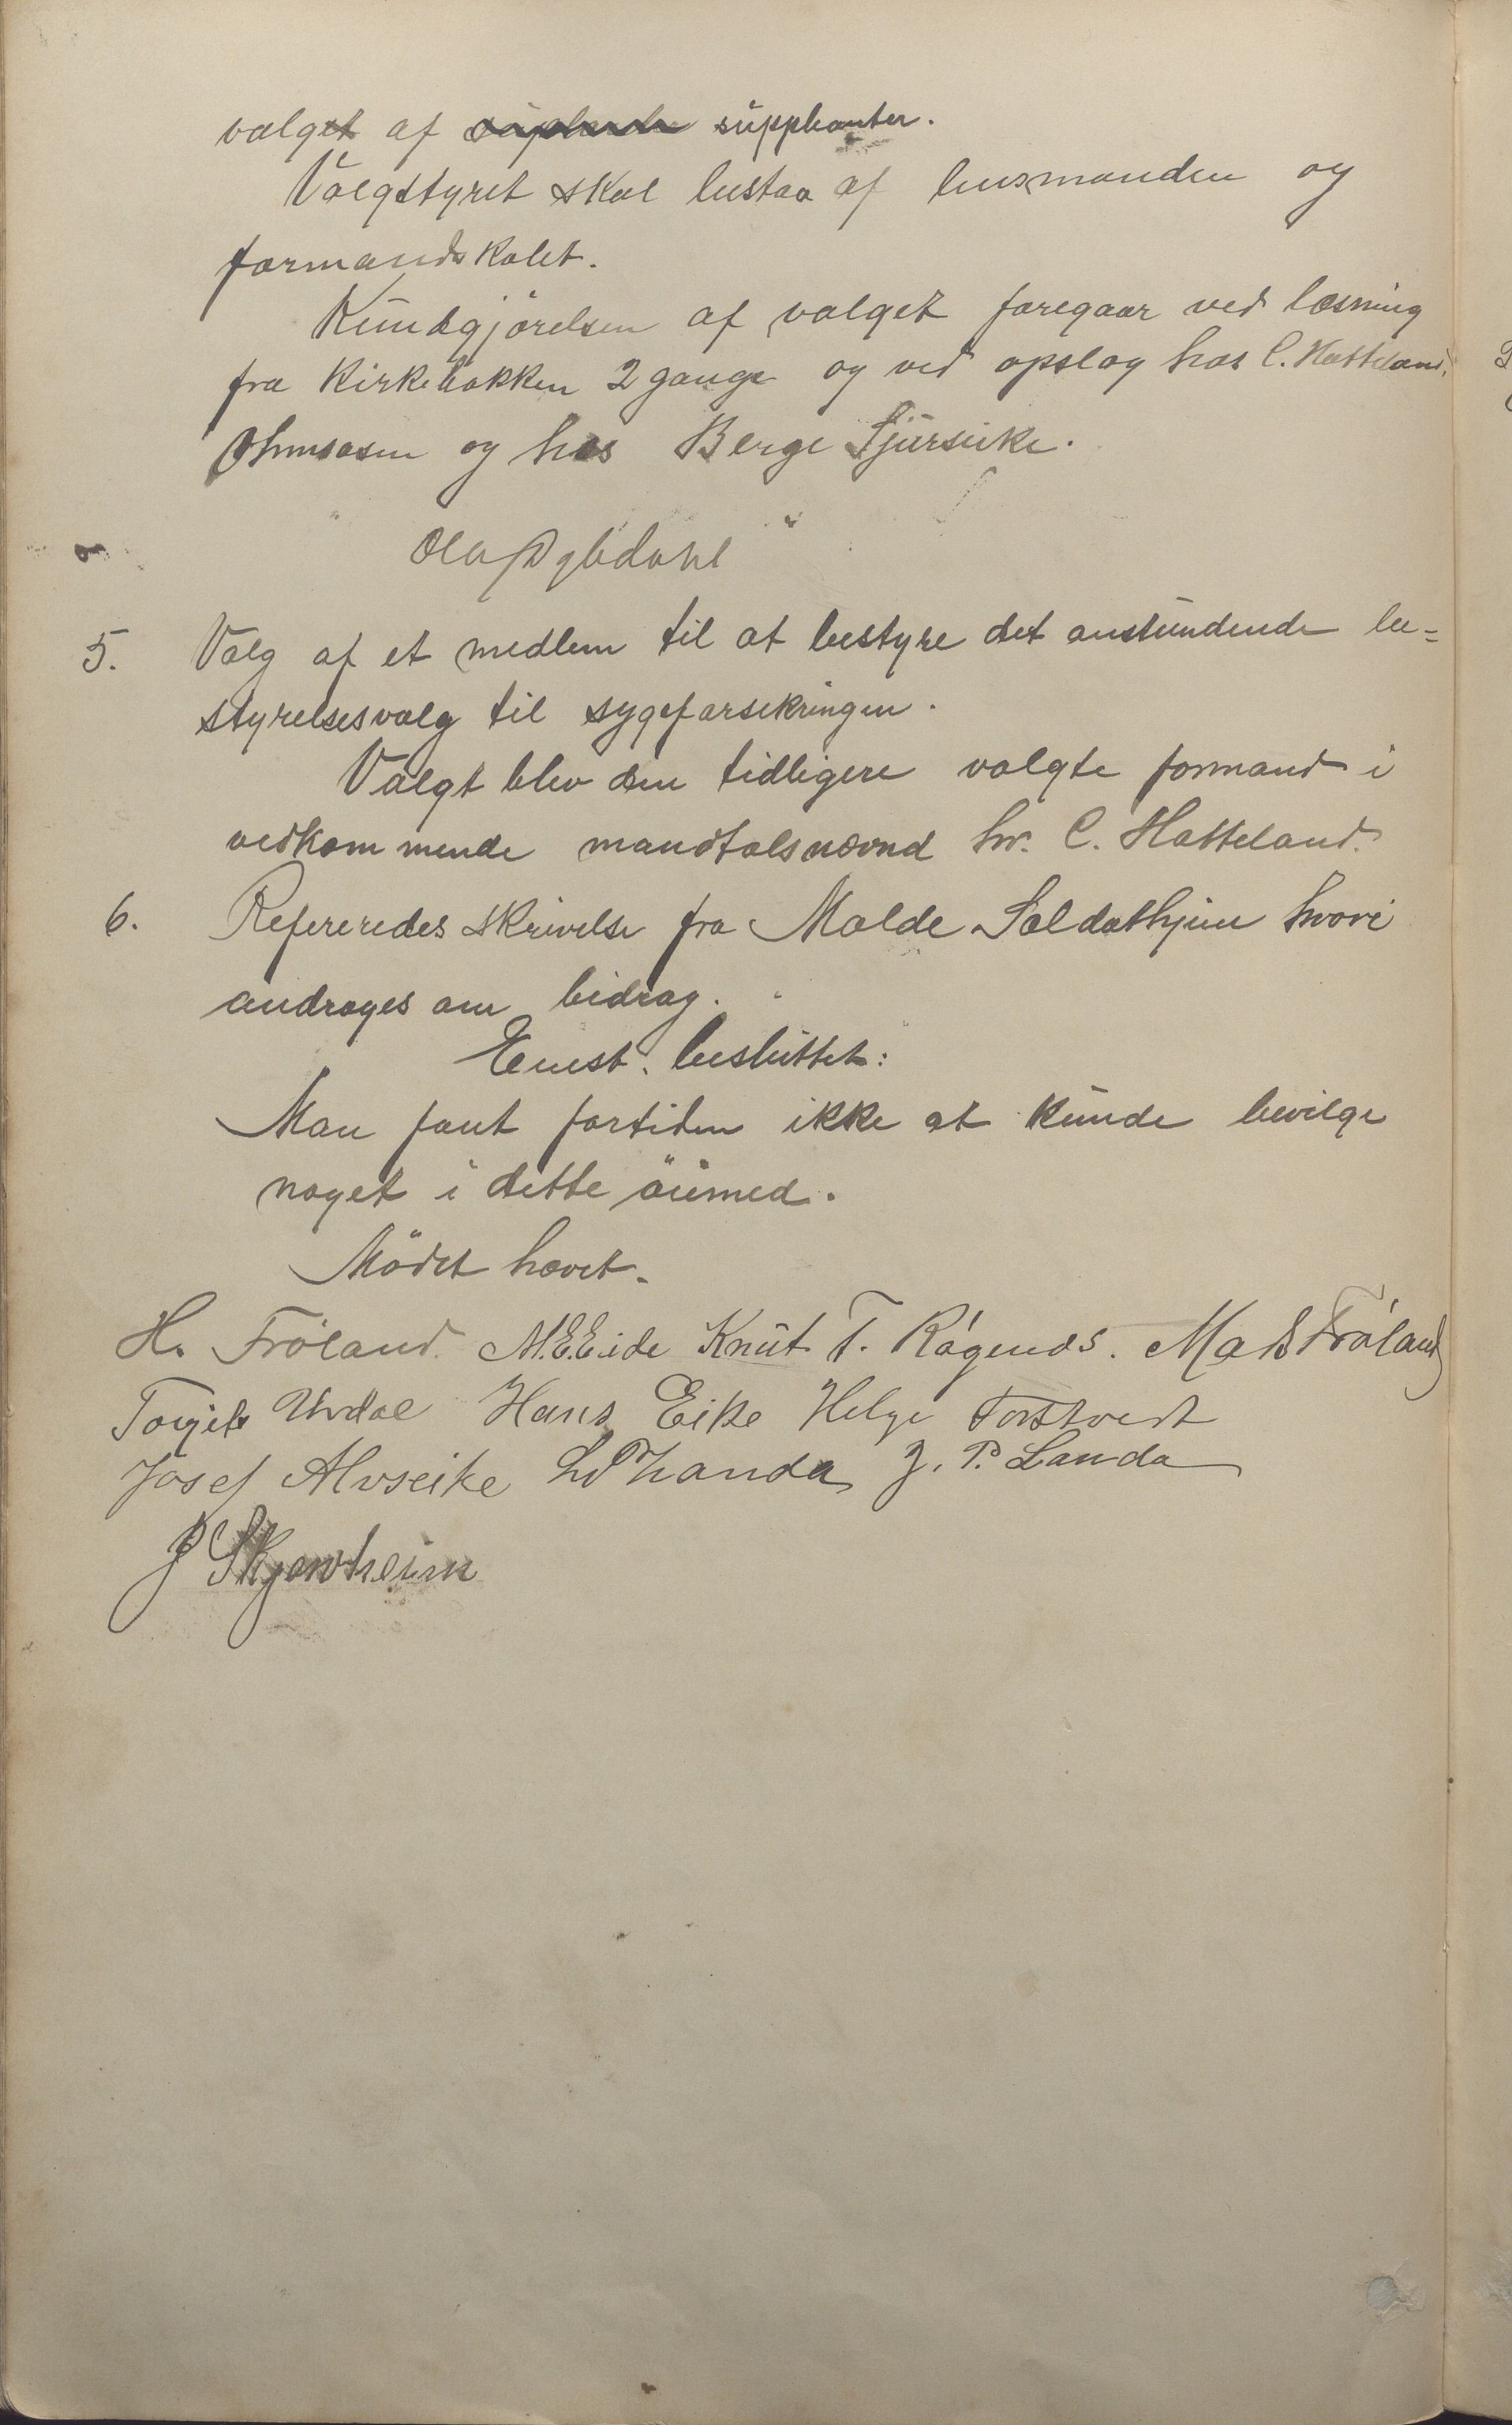 valget af suppleanter.
Valgstyret skal bestaa af lensmanden og
formandskabet.
Kundgjörelsen af valget foregaar ved læsning
fra Kirkebakken 2 gange og ved opslag hos C. Hatteland,
og hos Berge Sjurseike.
Olaf Dybdahl
5. Valg af et medlem til at bestyre det anstundende be=
styrelsesvalg til sygeforsekringen.
Valgt blev den tidligere valgte formand i
vedkommende mandtalsnævnd hr. C. Hatteland.
6. Refereredes skrivelse fra Molde Soldathjem hvori
androges om bidrag.
Enest. besluttet:
Man fant fortiden ikke at kunde bevilge
noget i dette öiemed.
Mödet hævet.
H. Fröland. M.E.Eide Knut T. Rágends. Mats Fröland
Torjels Urdal Hans Eike Helge Tostvedt
Josef Alvseike Landa J. P. Landa
P Skjenheim